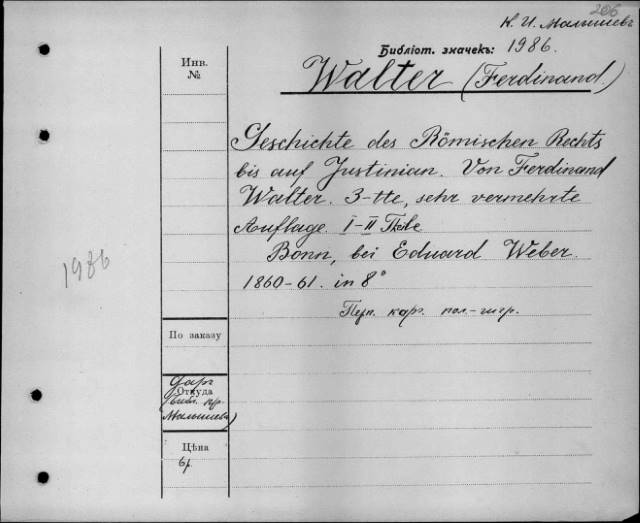 206
К. И. Малышевъ
Библіот. значекъ: 1986.
Инв.
№
Walter (Ferdinand)
Geschichte des Römischen Rechts
bis auf Justinian. Von Ferdinand
Walter. 3-tte, sehr vermehrte
Auflage I–II Theile
Bonn, bei Eduard Weber.
1860-61. in 8°
1986
Пер. кар. пол.-шагр.
По заказу
Даръ
Откуда
(библ. пр.
Малышева)
Цѣна
6 р.